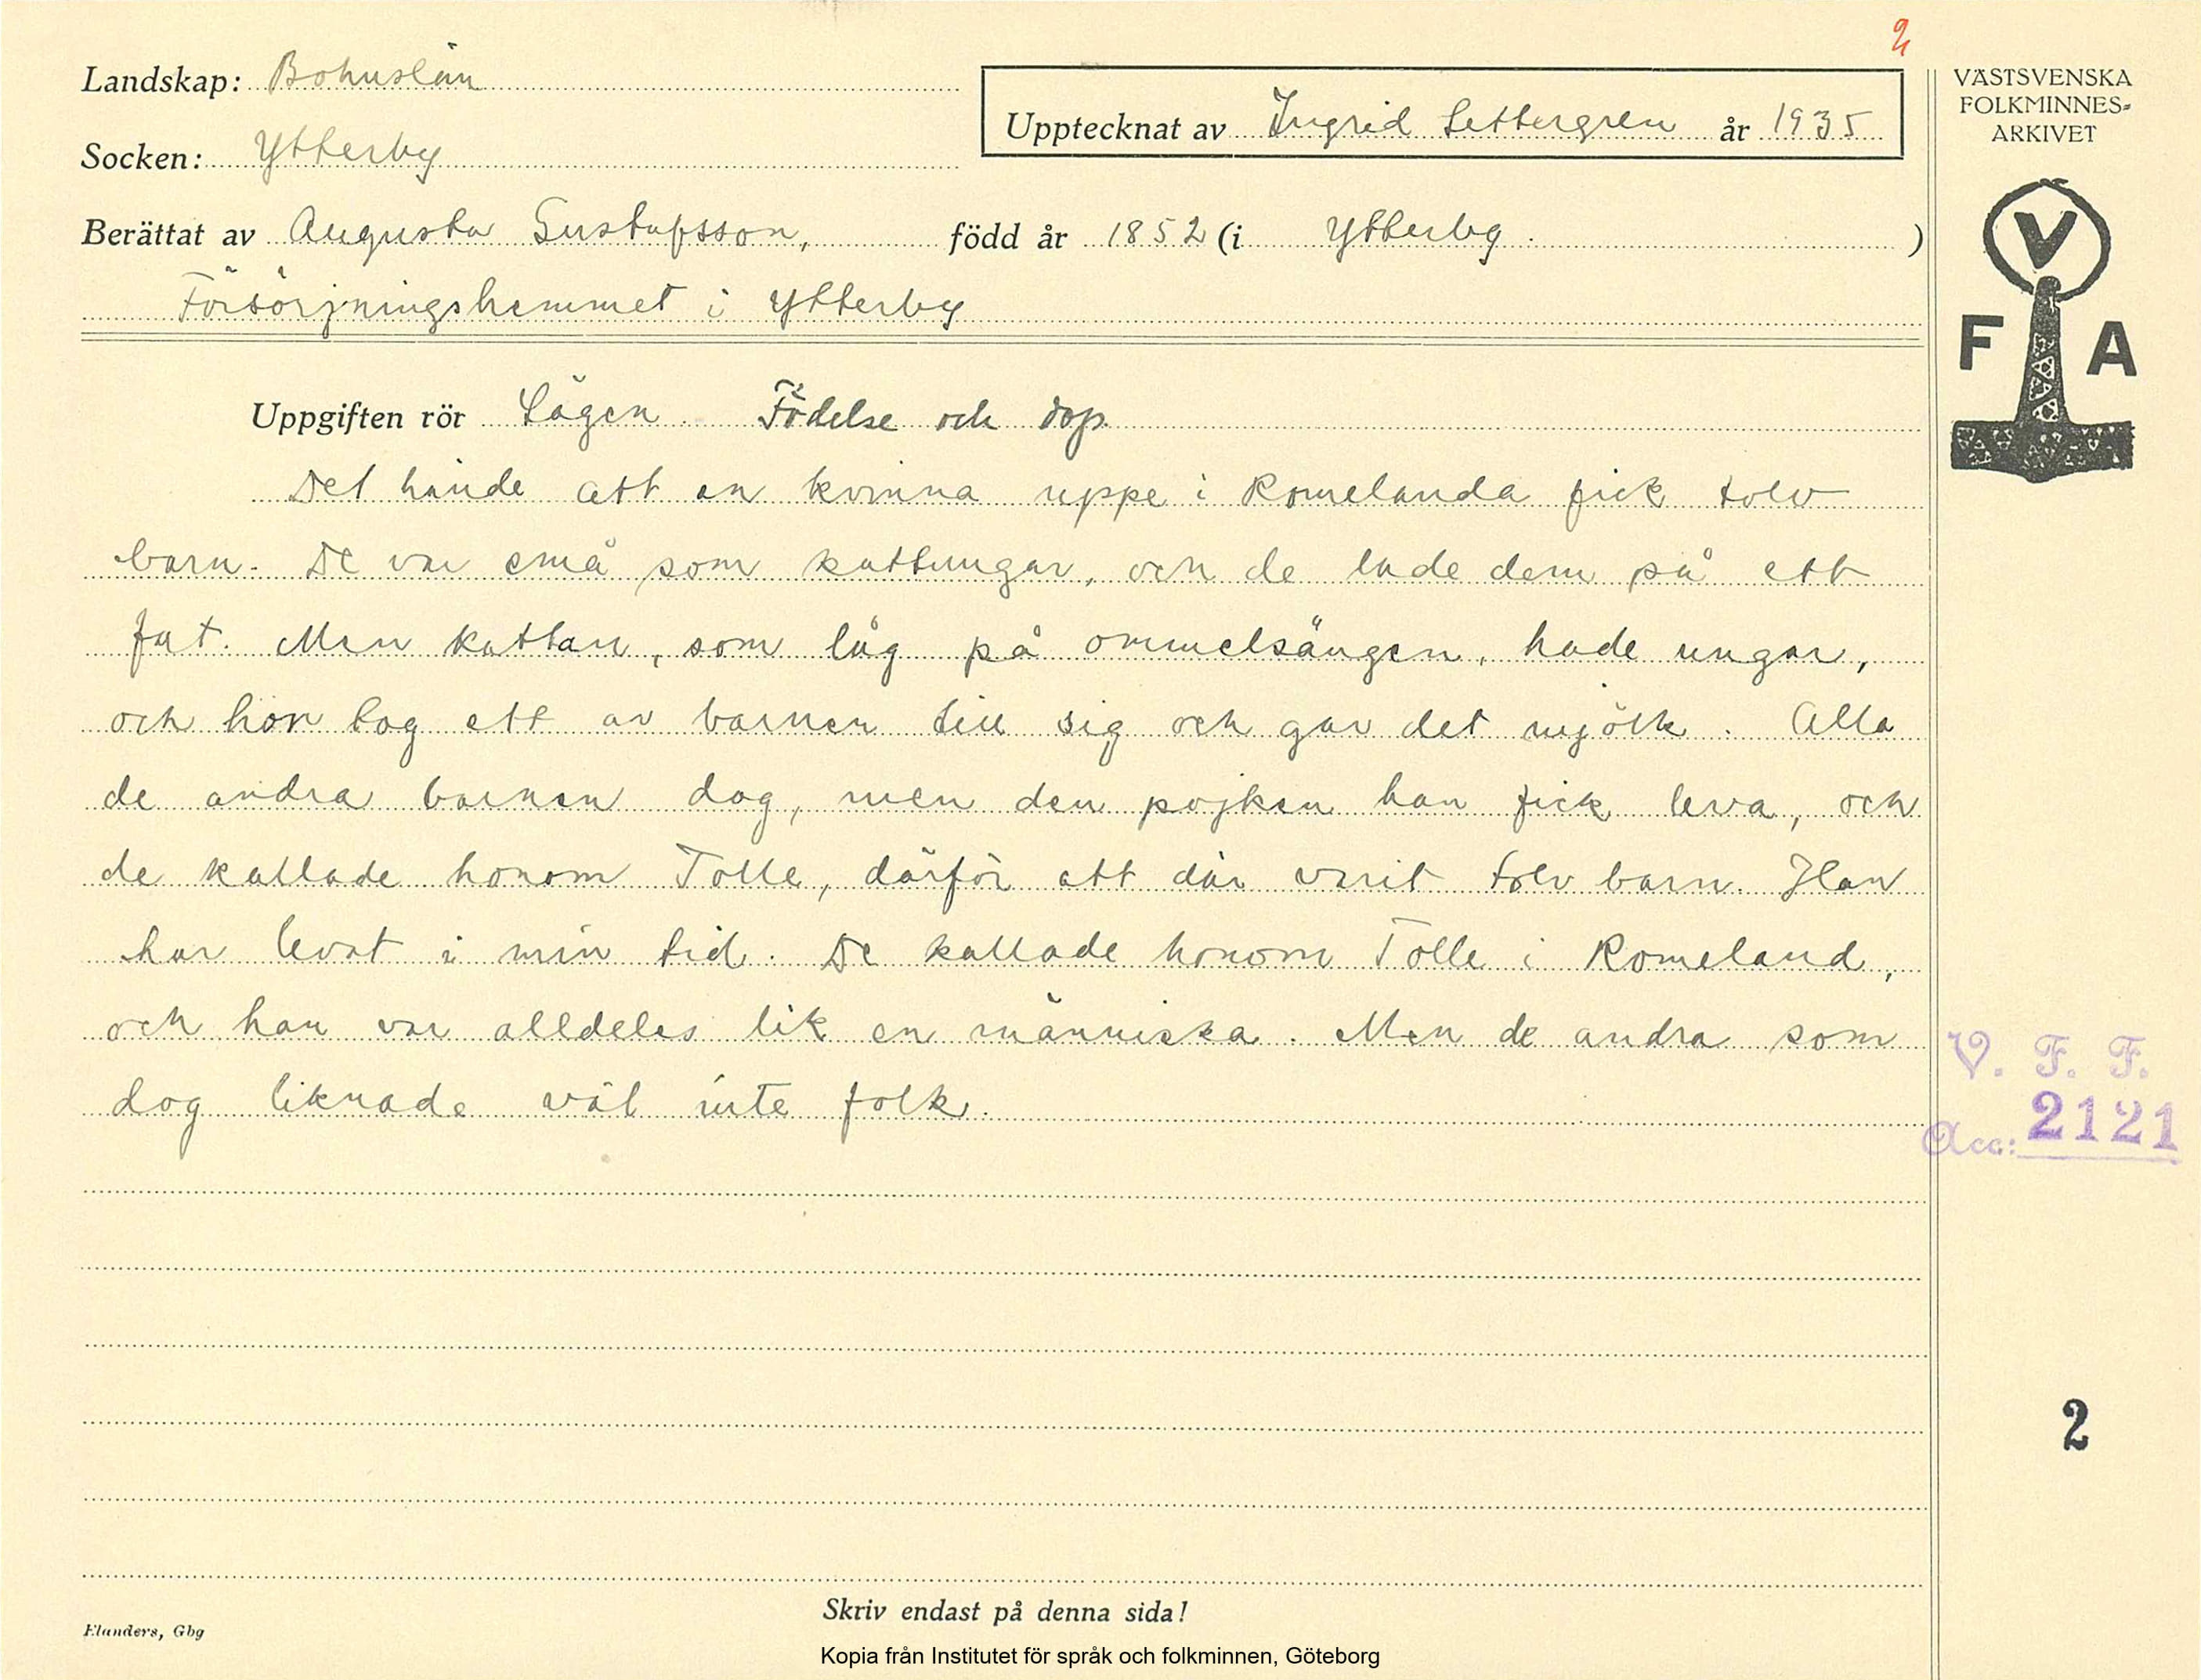 2
Landskap: Bohuslän
Socken: Ytterby
Upptecknat av Ingrid Settergren år 1935
Berättat av Augusta Gustafsson, född år 1852 (i Ytterby.)
Försörjningshemmet i Ytterby
VÄSTSVENSKA
FOLKMINNES-
ARKIVET
V
F A
Uppgiften rör Sägen. Födelse och dop.
Det hände att en kvinna uppe i Romelanda fick tolv
barn. De var små som kattungar, och de lade dem på ett
fat. Men kattan, som låg på ommelsängen, hade ungar,
och hon tog ett av barnen till sig och gav det mjölk. Alla
de andra barnen dog, men den pojken han fick leva, och
de kallade honom Tolle, därför att där varit tolv barn. Han
har levat i min tid. De kallade honom Tolle i Romeland,
och han var alldeles lik en människa. Men de andra som
dog liknade väl inte folk.
V. F. F.
Acc: 2121
2
Skriv endast på denna sida!
Elanders, Gbg
Kopia från Institutet för språk och folkminnen, Göteborg